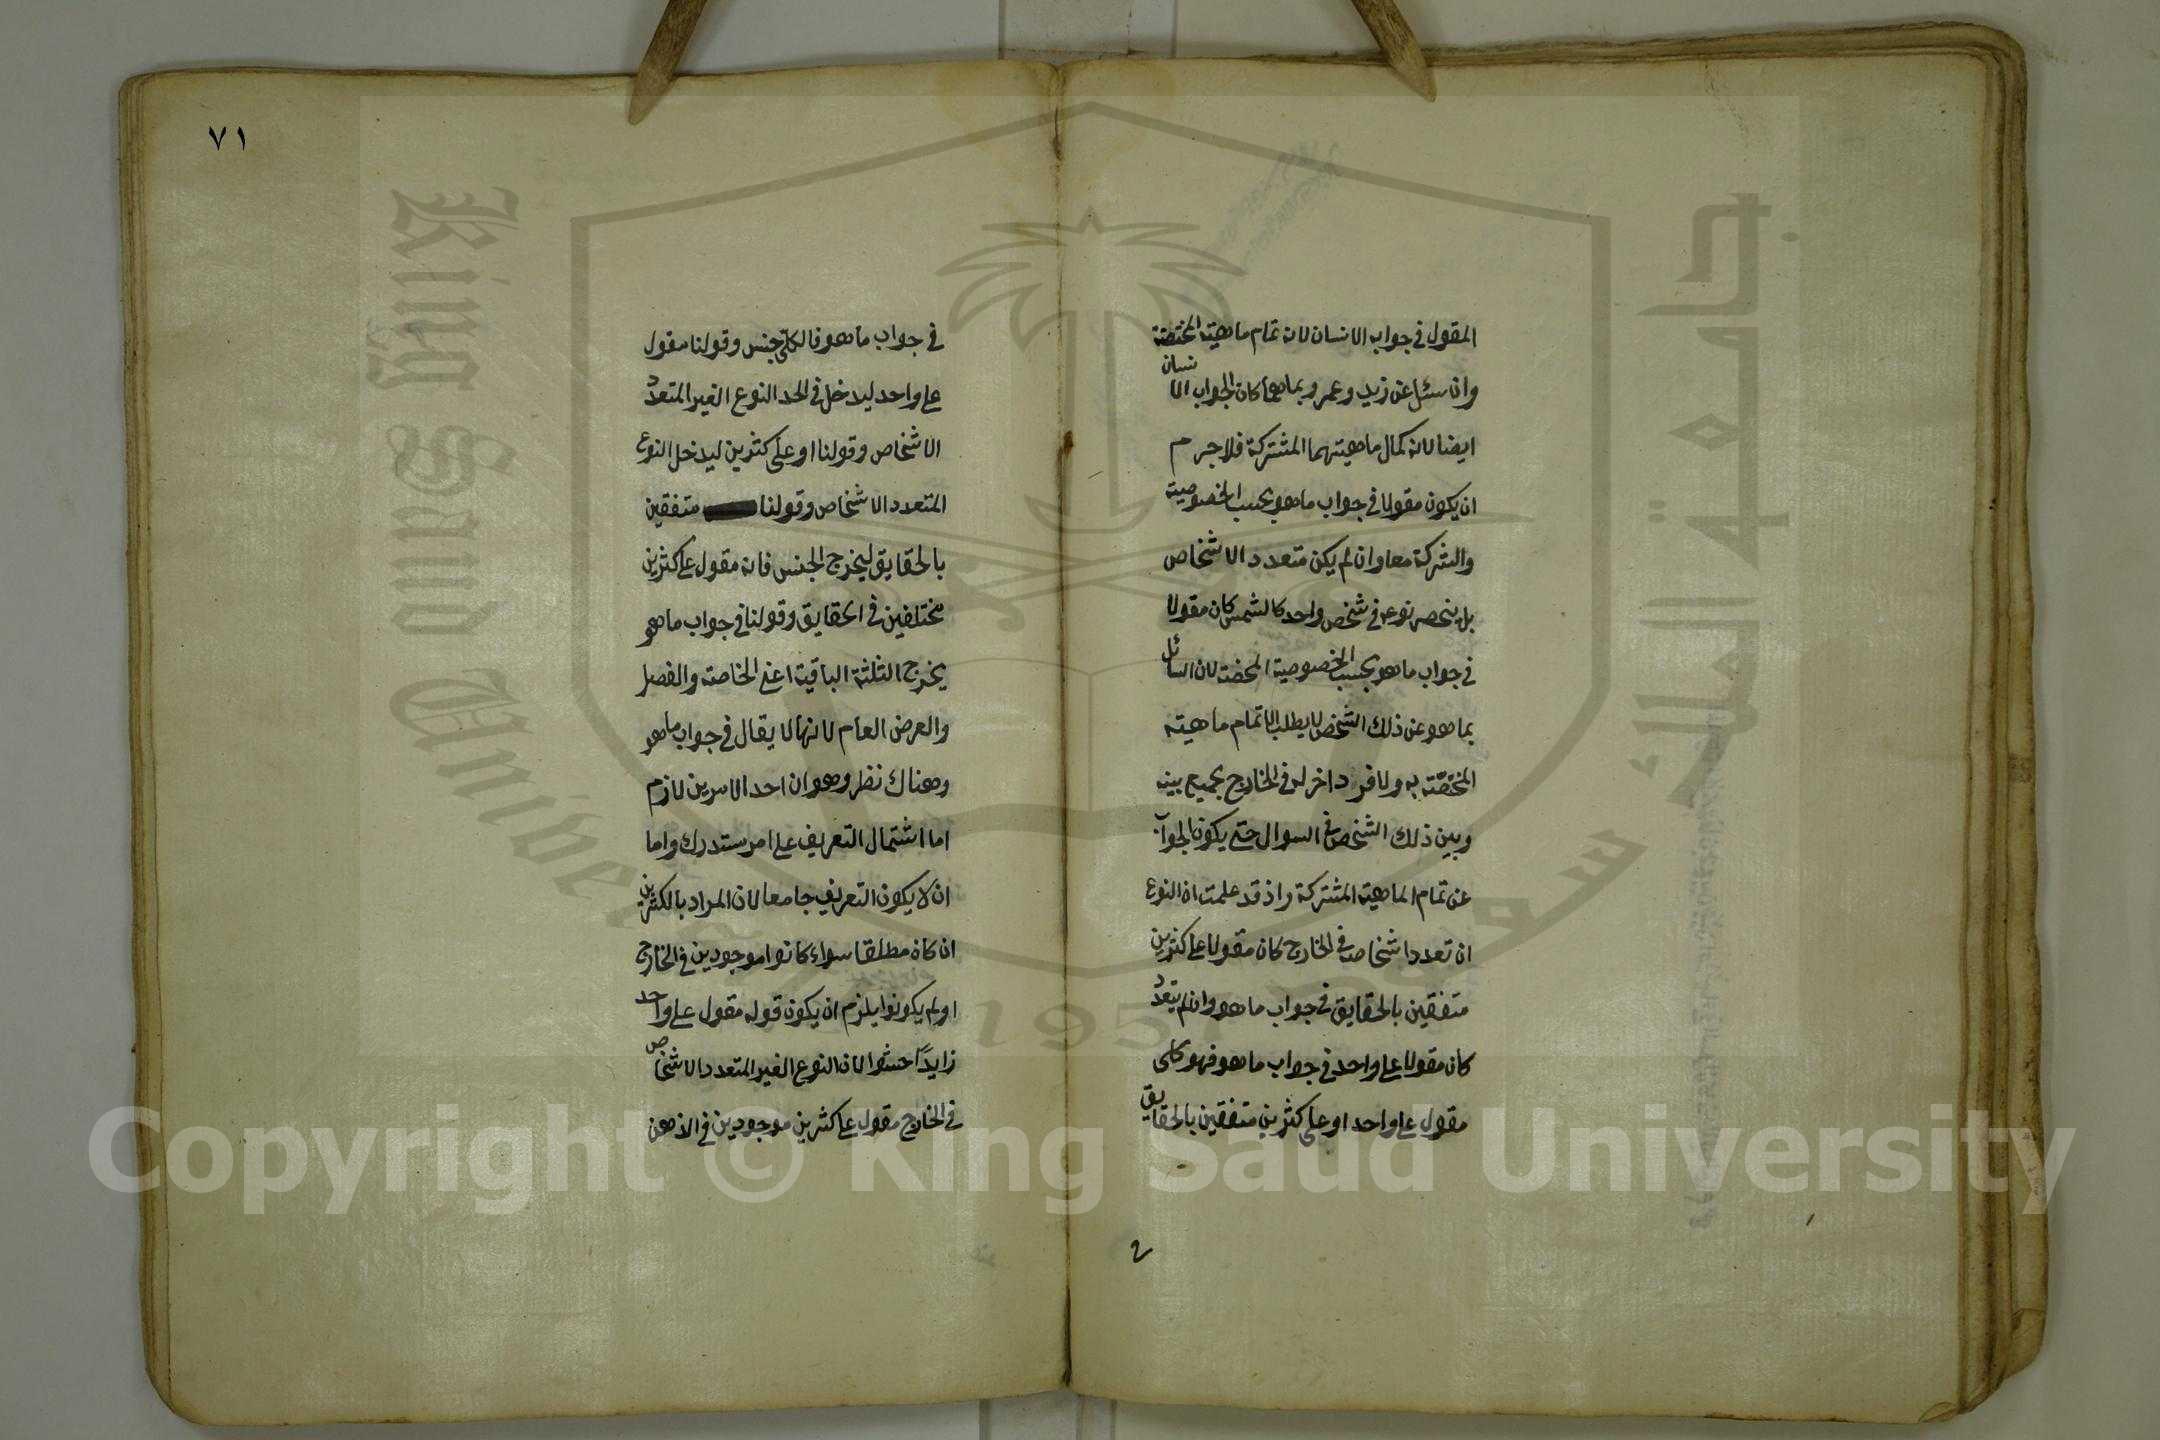 المقول في جواب الانسان لانه تمام ماهيته المختصة
وان سئل عن زيد وعمرو بما هما كان الجواب الانسان
ايضا لانه كمال ماهيتهما المشتركة فلا جرم
ان يكون مقولا في جواب ما هو بحسب الخصوصية
والشركة معا وان لم يكن متعدد الاشخاص
بل ينحصر نوعه في شخص واحد كالشمس كان مقولا
في جواب ما هو بحسب الخصوصية المحضة لان السائل
بما هو عن ذلك الشخص لا يطلب الا تمام ماهيته
المختصة به ولا فرد اخر له في الخارج يجمع بينه
وبين ذلك الشخص في السوال حتى يكون الجواب
عن تمام الماهية المشتركة واذ قد علمت ان النوع
ان تعدد اشخاصه في الخارج كان مقولا على كثيرين
متفقين بالحقايق في جواب ما هو وان لم يتعدد
كان مقولا على واحد في جواب ما هو فهو كلي
مقول على واحد او على كثيرين متفقين بالحقايق
٧١
في جواب ما هو فالكلي جنس وقولنا مقول
على واحد ليدخل في الحد النوع الغير المتعدد
الاشخاص وقولنا او على كثيرين ليدخل النوع
المتعدد الاشخاص وقولنا متفقين
بالحقايق ليخرج الجنس فانه مقول على كثيرين
مختلفين في الحقايق وقولنا في جواب ما هو
يخرج الثلثة الباقية اعني الخاصة والفصل
والعرض العام لانها لا يقال في جواب ما هو
وهناك نظر وهو ان احد الامرين لازم
اما اشتمال التعريف على امر مستدرك واما
ان لا يكون التعريف جامعا لان المراد بالكثيرين
ان كان مطلقا سواء كانوا موجودين في الخارج
او لم يكونوا يلزم ان يكون قوله مقول على واحد
زايدًا حشوا لان النوع الغير المتعدد الاشخاص
في الخارج مقول على كثيرين موجودين في الذهن
King Saud Univer
1957
Copyright © King Saud University